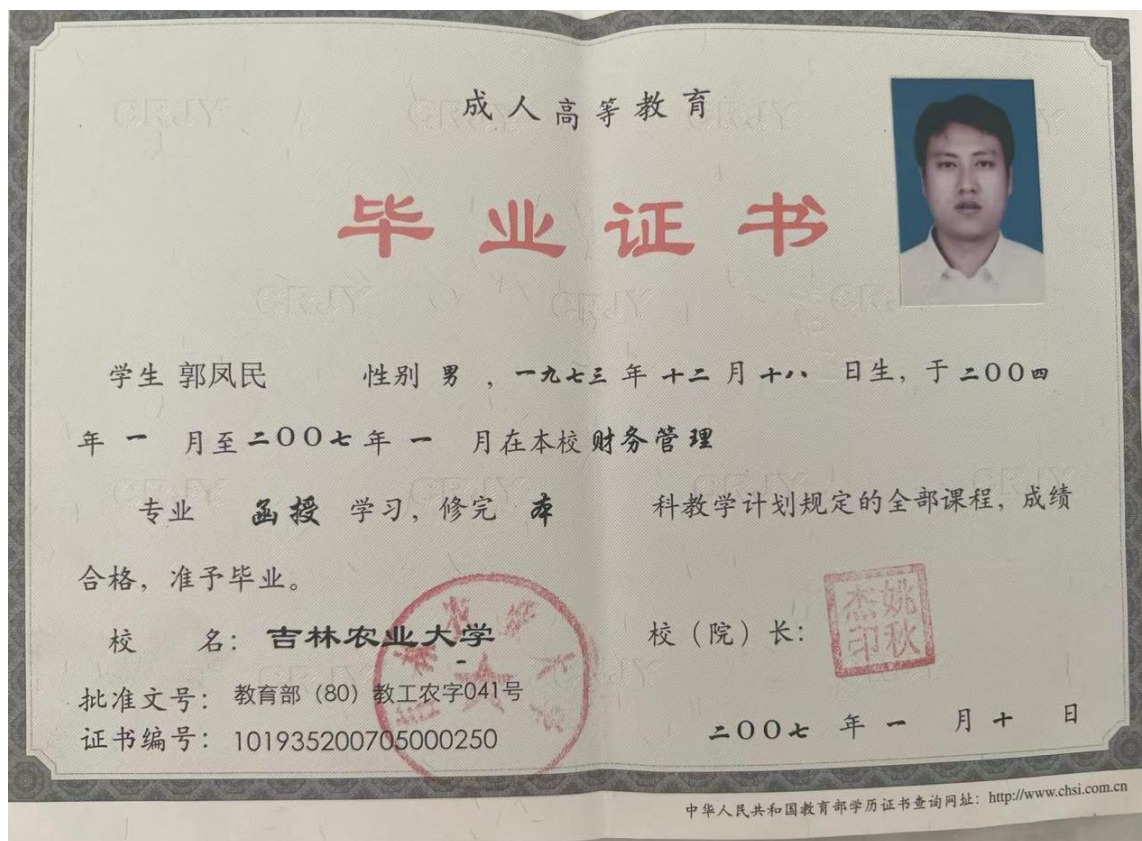 成人高等教育
毕业证书
学生 郭凤民 性别 男 ，一九七三 年 十二 月 十八 日生，于 二00四
年 一 月至 二00七 年 一 月在本校 财务管理
专业 函授 学习，修完 本 科教学计划规定的全部课程，成绩
合格，准予毕业。
校 名：吉林农业大学 校（院）长：
姚秋杰印
批准文号：教育部（80）教工农字041号
证书编号：101935200705000250
二00七 年 一 月 十 日
中华人民共和国教育部学历证书查询网址：http://www.chsi.com.cn